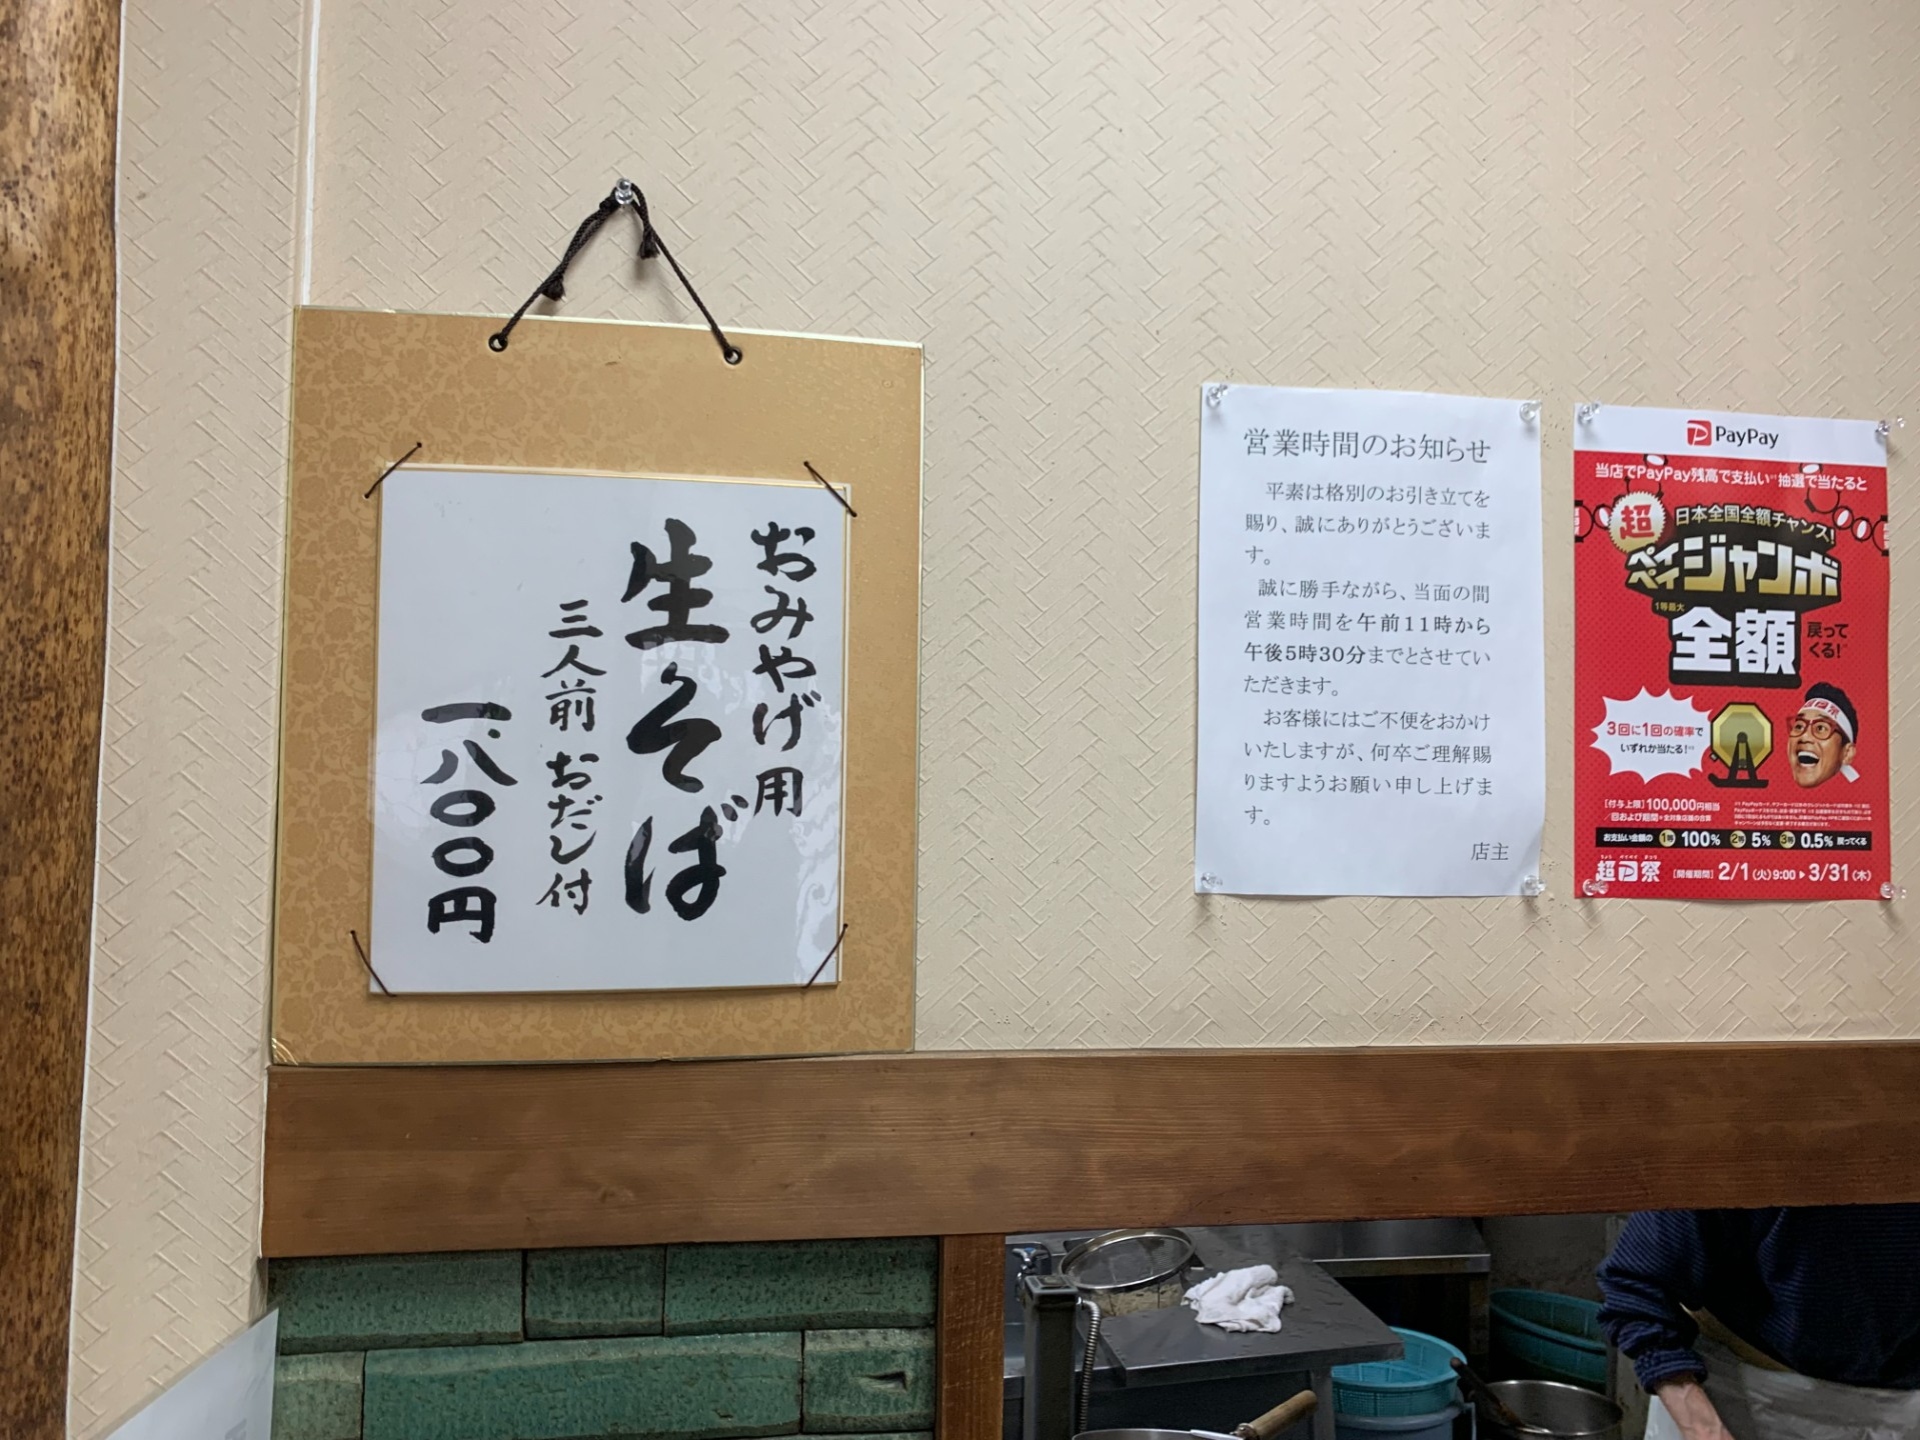 おみやげ用
生そば
三人前 おだし付
一、八〇〇円
営業時間のお知らせ
平素は格別のお引き立てを
賜り、誠にありがとうございま
す。
誠に勝手ながら、当面の間
営業時間を午前11時から
午後5時30分までとさせてい
ただきます。
お客様にはご不便をおかけ
いたしますが、何卒ご理解賜
りますようお願い申し上げま
す。
店主
PayPay
当店でPayPay残高で支払い 抽選で当たると
超
日本全国全額チャンス!
ペイペイジャンボ
1等最大
全額
戻って
くる!
3回に1回の確率で
いずれか当たる!
[付与上限]100,000円相当
お支払い金額の 1等 100% 2等 5% 3等 0.5% 戻ってくる
[開催期間] 2/1(火)9:00 ▶ 3/31(木)